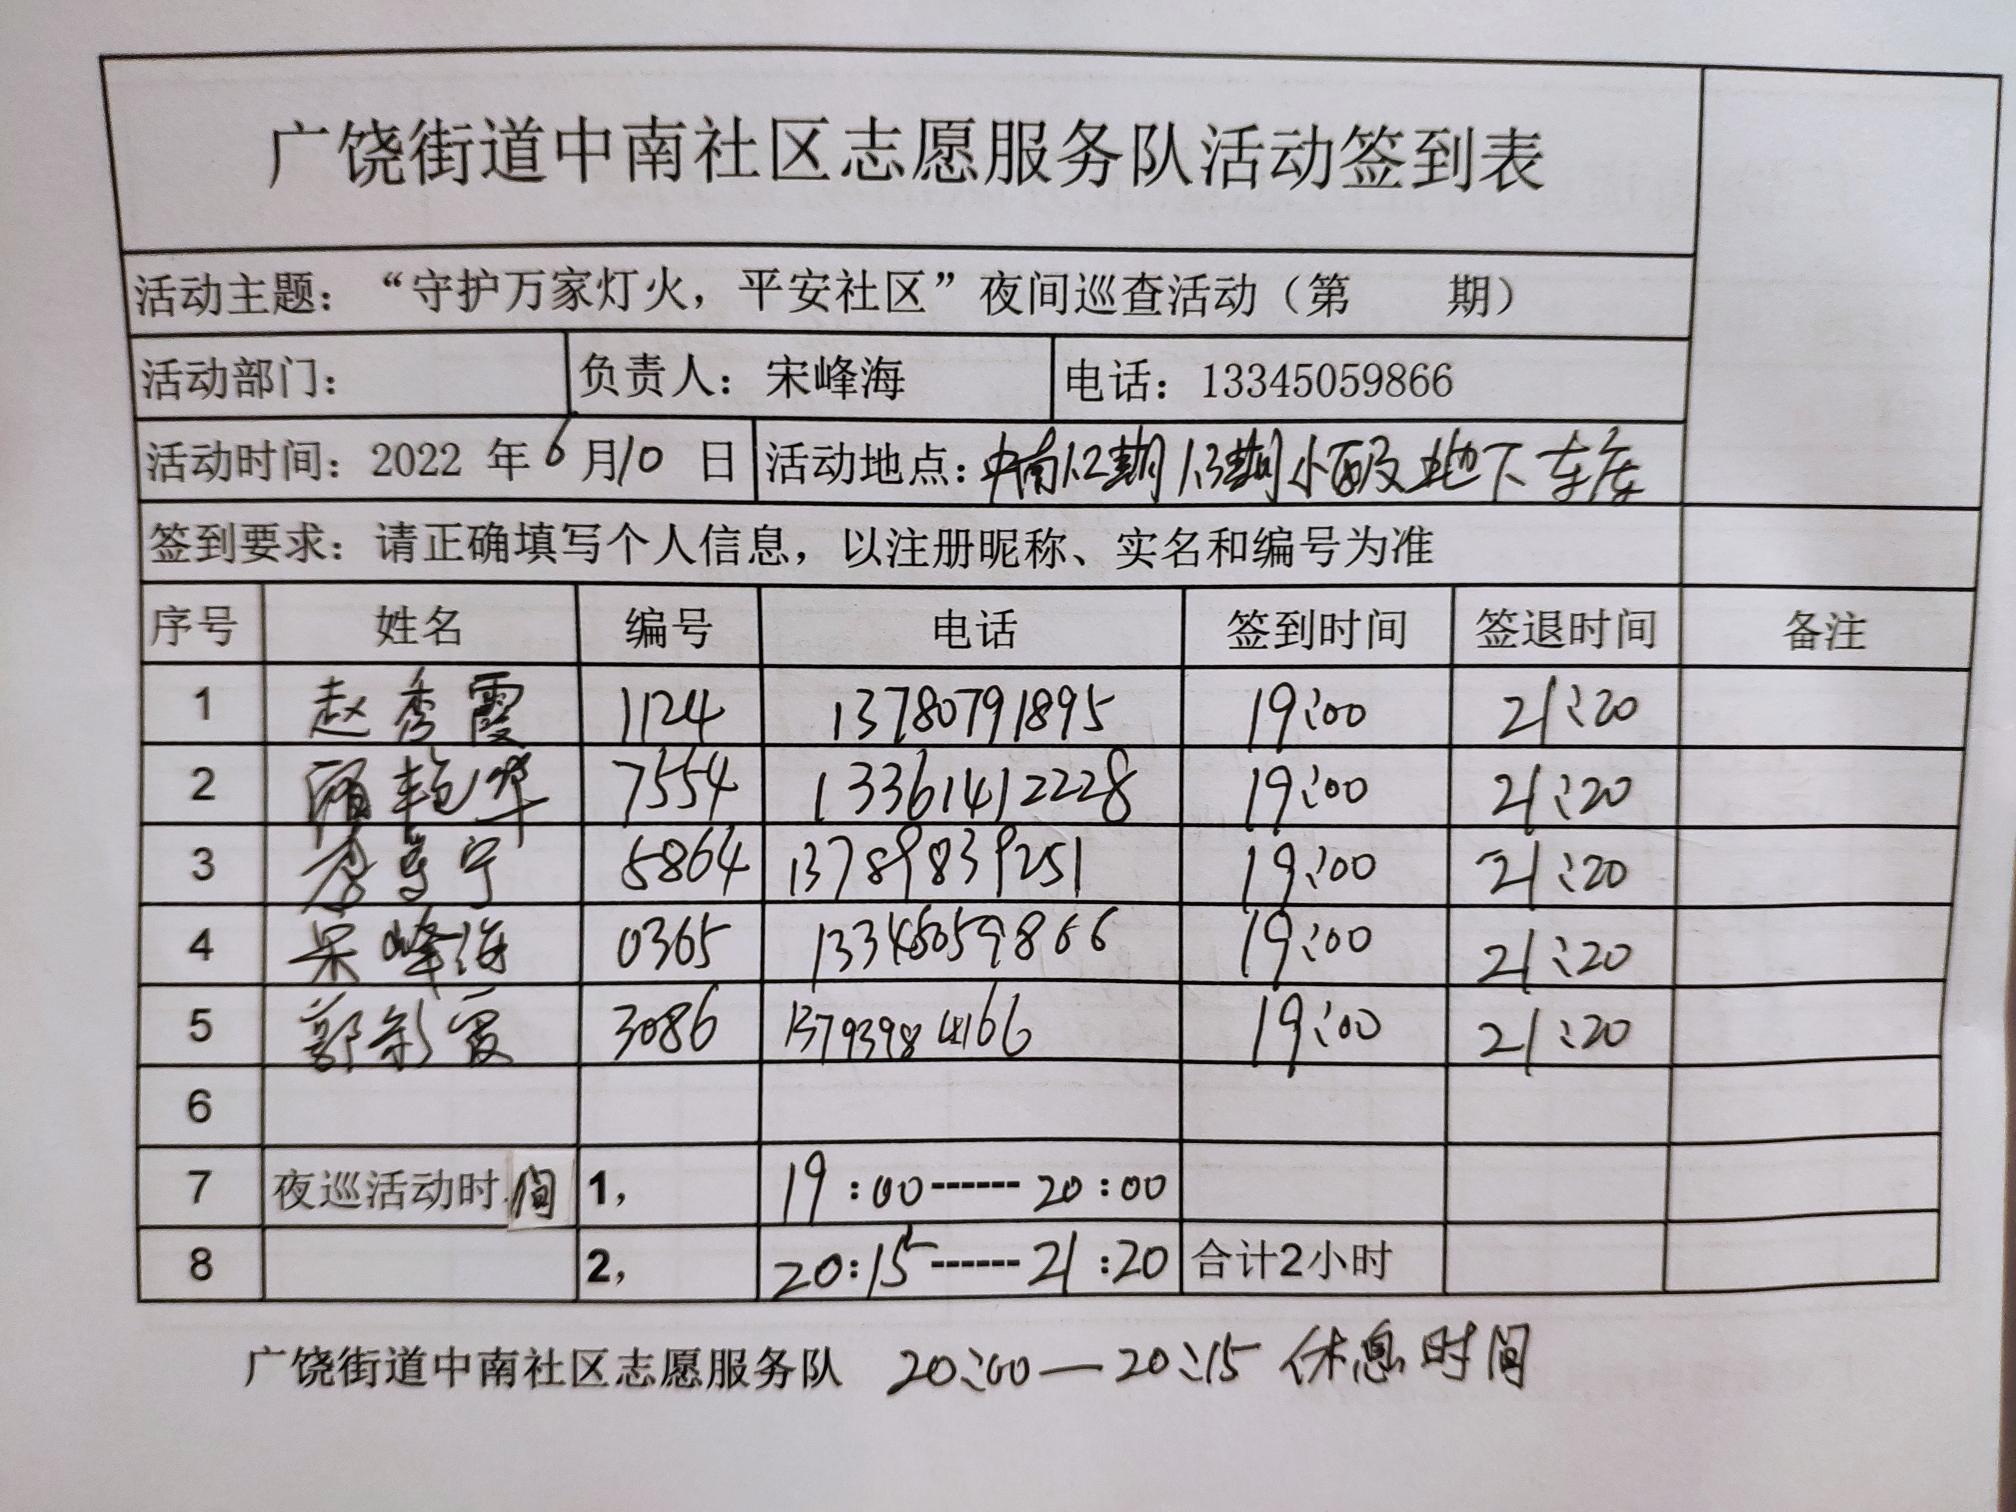 广饶街道中南社区志愿服务队活动签到表
活动主题：“守护万家灯火，平安社区”夜间巡查活动（第 期）
活动部门： 负责人：宋峰海 电话：13345059866
活动时间：2022 年 6 月 10 日 活动地点：中南1.2期1.3期小区及地下车库
签到要求：请正确填写个人信息，以注册昵称、实名和编号为准
序号 姓名 编号 电话 签到时间 签退时间 备注
1 赵秀霞 1124 13780791895 19:00 21:20
2 顾艳华 7554 13361412228 19:00 21:20
3 宁 5864 13789839251 19:00 21:20
4 宋峰海 0365 13345059866 19:00 21:20
5 郭彩霞 3086 13793984166 19:00 21:20
6
7 夜巡活动时间 1， 19:00------20:00
8 2， 20:15------21:20 合计2小时
广饶街道中南社区志愿服务队 20:00—20:15 休息时间